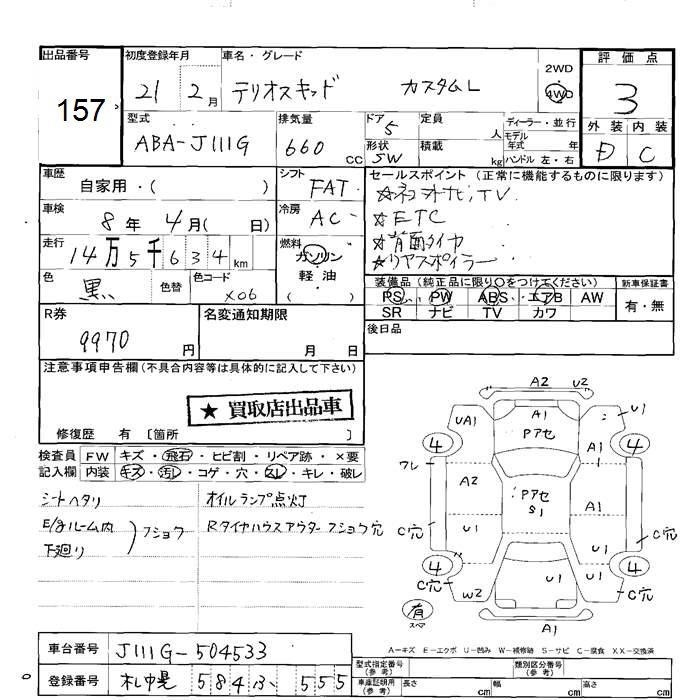 出品番号 初度登録年月 車名・グレード 評価点
157 21 2月 テリオスキッド カスタムL 2WD 4WD 3
型式 排気量 ドア 定員 ディーラー・並行 外装 内装
ABA-J111G 660cc 5 人 モデル年式 年 D C
形状 SW 積載 kg ハンドル 左・右
車歴 シフト セールスポイント(正常に機能するものに限ります)
自家用・( ) FAT ☆ TV
車検 冷房 ☆ETC
8年 4月( 日) AC ☆背面タイヤ
走行 燃料 ☆リヤスポイラー
14万5千634km ガソリン
軽油
( )
色 色替 色コード 装備品(純正品に限り○をつけてください) 新車保証書
黒 X06 PS PW ABS エアB AW 有・無
SR ナビ TV カワ
R券 名変通知期限 後日品
9970円 月 日
注意事項申告欄(不具合内容等は具体的に記入して下さい)
★買取店出品車
修復歴 有 〔箇所 〕
検査員 FW キズ・飛石・ヒビ割・リペア跡・×要
記入欄 内装 キズ・汚レ・コゲ・穴・スレ・キレ・破レ
シートヘタリ オイルランプ点灯
E/gルーム内 フショク Rタイヤハウスアウターフショク穴
下廻り
A2 U2
UA1 A1 Pアセ U1
4 A1 4
ワレ A2 Pアセ S1 A1
C穴 U1 U1 C穴
4 4
C穴 W2 U1 C穴
有 スペア A1
A-キズ E-エクボ U-凹み W-補修跡 S-サビ C-腐食 XX-交換済
車台番号 J111G-504533 型式指定番号(参考) 類別区分番号(参考)
登録番号 584 555 車庫証明用(参考) 長さ cm 幅 cm 高さ cm